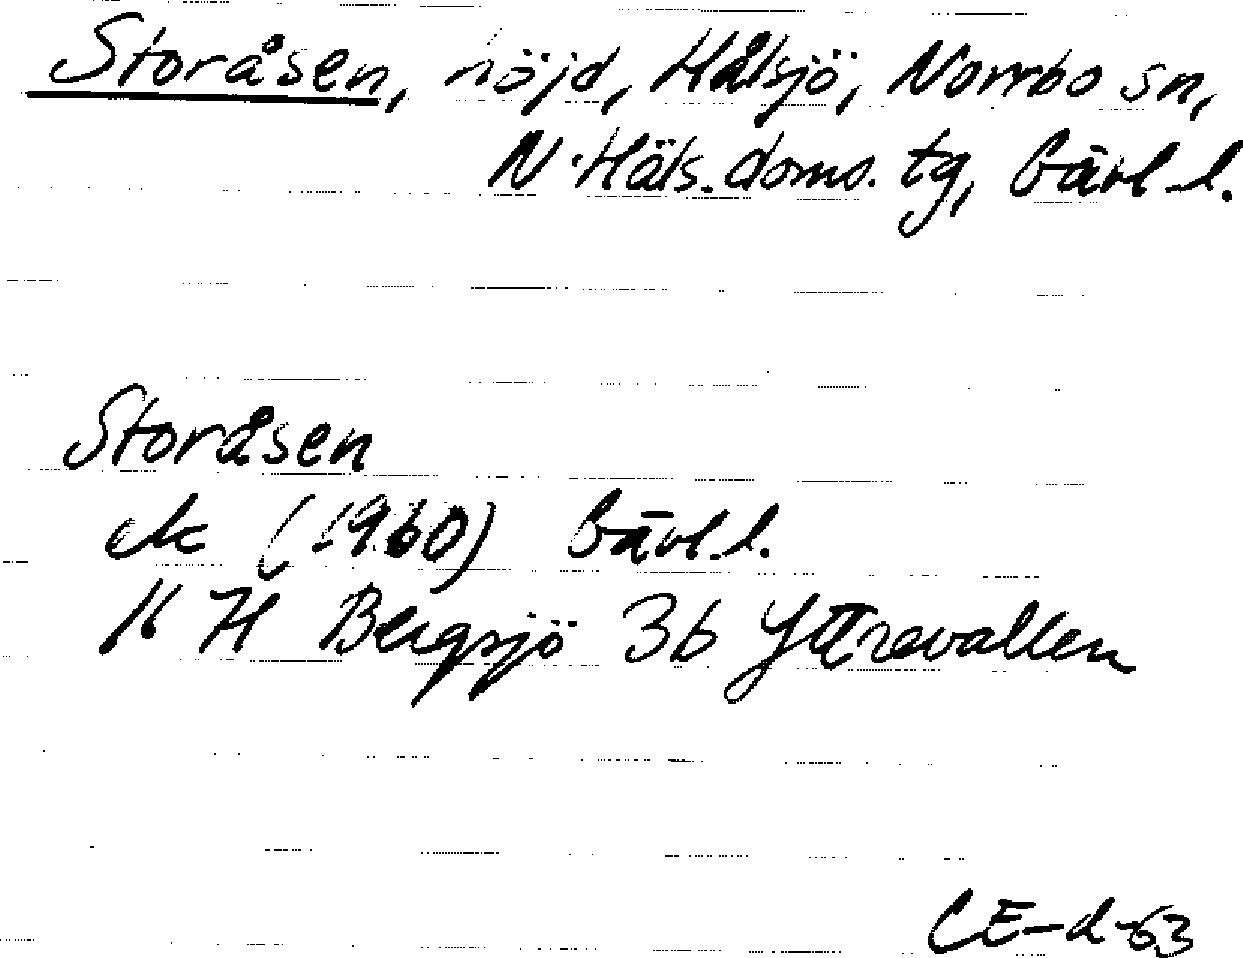 Storåsen, höjd, Hålsjö, Norrbo sn,
N. Häls. doms. tg, Gävl. l.
Storåsen
ek (1960) Gävl. l.
K H Bergsjö 3b Yttrevallen
CE-d-63